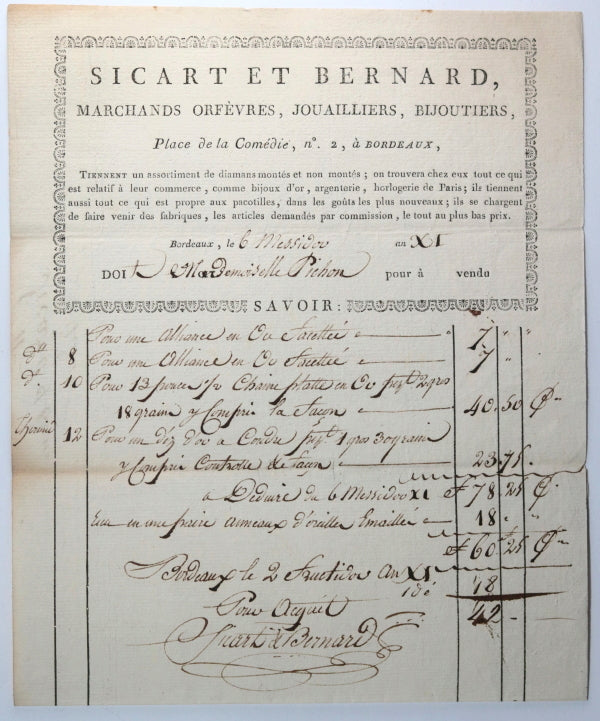 SICART ET BERNARD,
MARCHANDS ORFÈVRES, JOUAILLIERS, BIJOUTIERS,
Place de la Comédie, nº. 2, à BORDEAUX,
TIENNENT un assortiment de diamans montés et non montés; on trouvera chez eux tout ce qui
est relatif à leur commerce, comme bijoux d'or, argenterie, horlogerie de Paris; ils tiennent
aussi tout ce qui est propre aux pacotilles, dans les goûts les plus nouveaux; ils se chargent
de faire venir des fabriques, les articles demandés par commission, le tout au plus bas prix.
Bordeaux, le 6 Messidor an XI
DOIt Mademoiselle Pichon pour à vendu
SAVOIR:
Pour une Alliance en Or facettée 7 " "
dº 8 Pour une Alliance en Or facettée 7 " "
dº 10 Pour 13 pouce ½ Chaine platte en Or 2 gros
18 grains y Compris la façon 40. 50
12 Pour un dez d'or a Coudre 1 gros 30 grains
y Compris Controlle & façon 23. 75.
a Deduire du 6 Messidor XI 78. 25
en une paire anneaux d'oreilles Emaillée 18 "
60. 25
Bordeaux le 2 Fructidor An XI
18
Pour Acquit 42 -
Sicart & Bernard